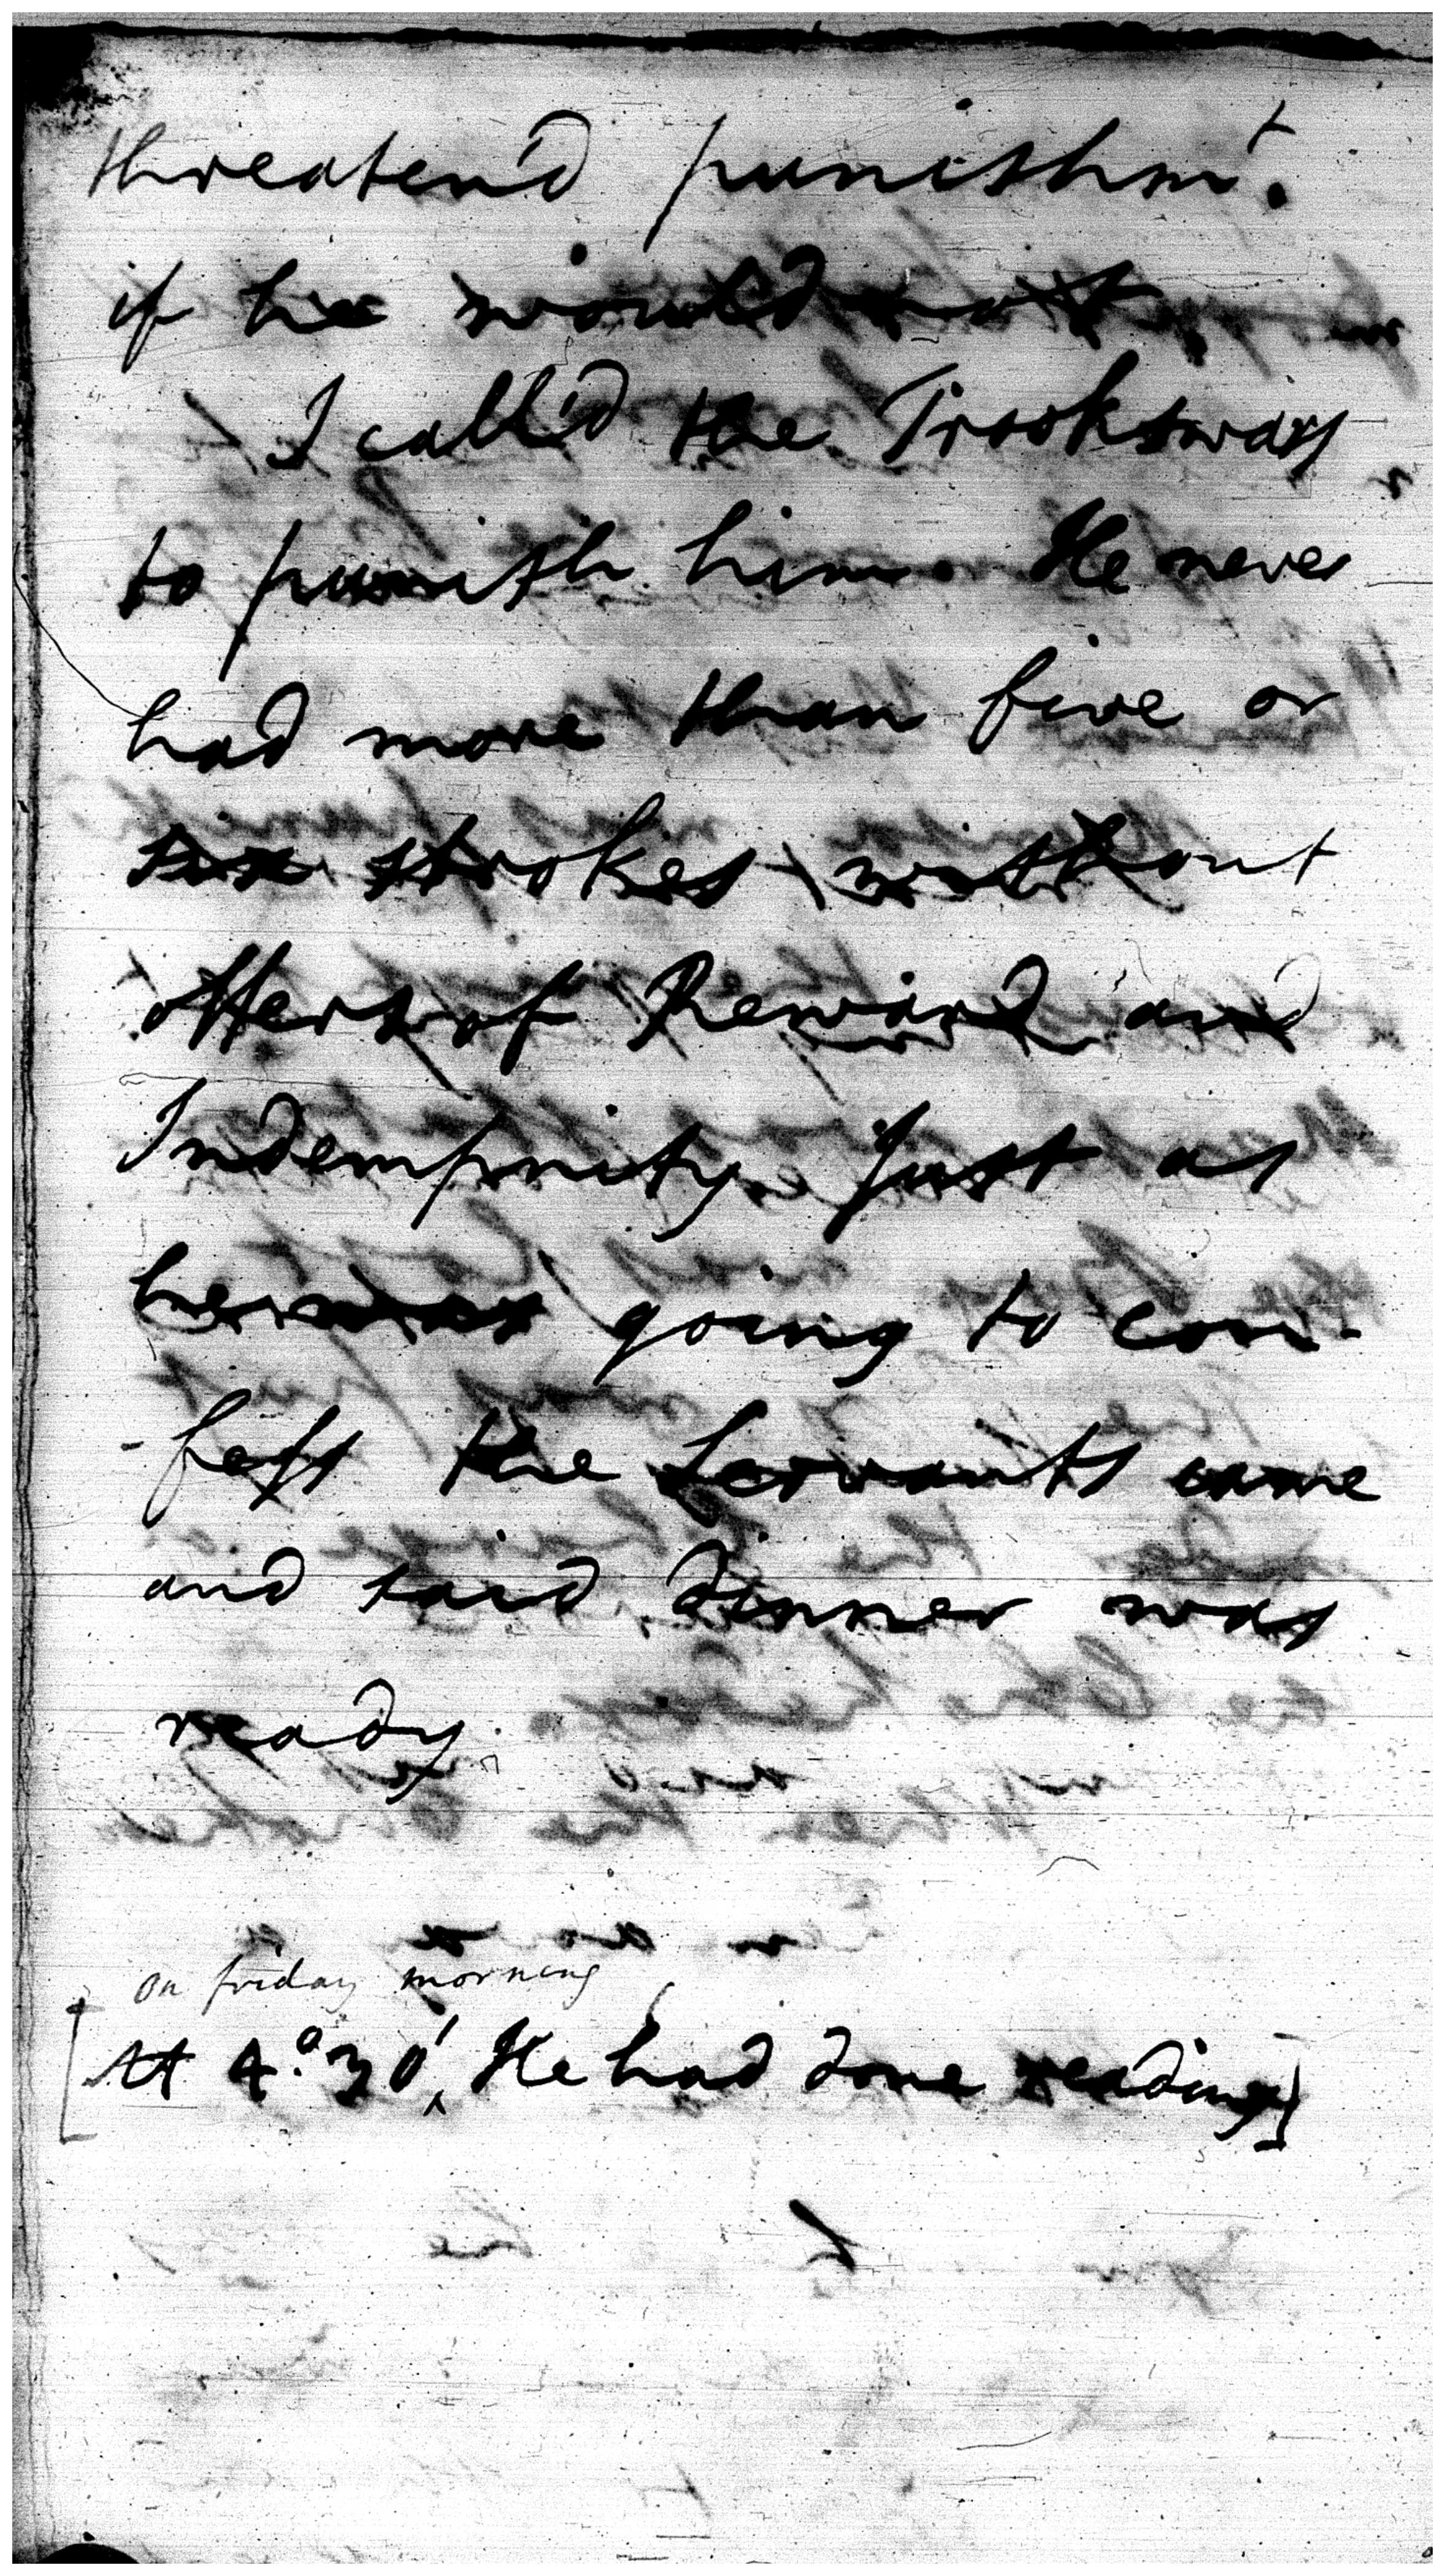 threaten'd punishmt.
if he would not
I call'd the Trooksways
to punish him. He never
had more than five or
six strokes without
offers of Reward and
Indempnity. Just as
he was going to con-
-fess the Servants came
and said dinner was
ready.
on friday morning
[At 4° 30', He had done reading]